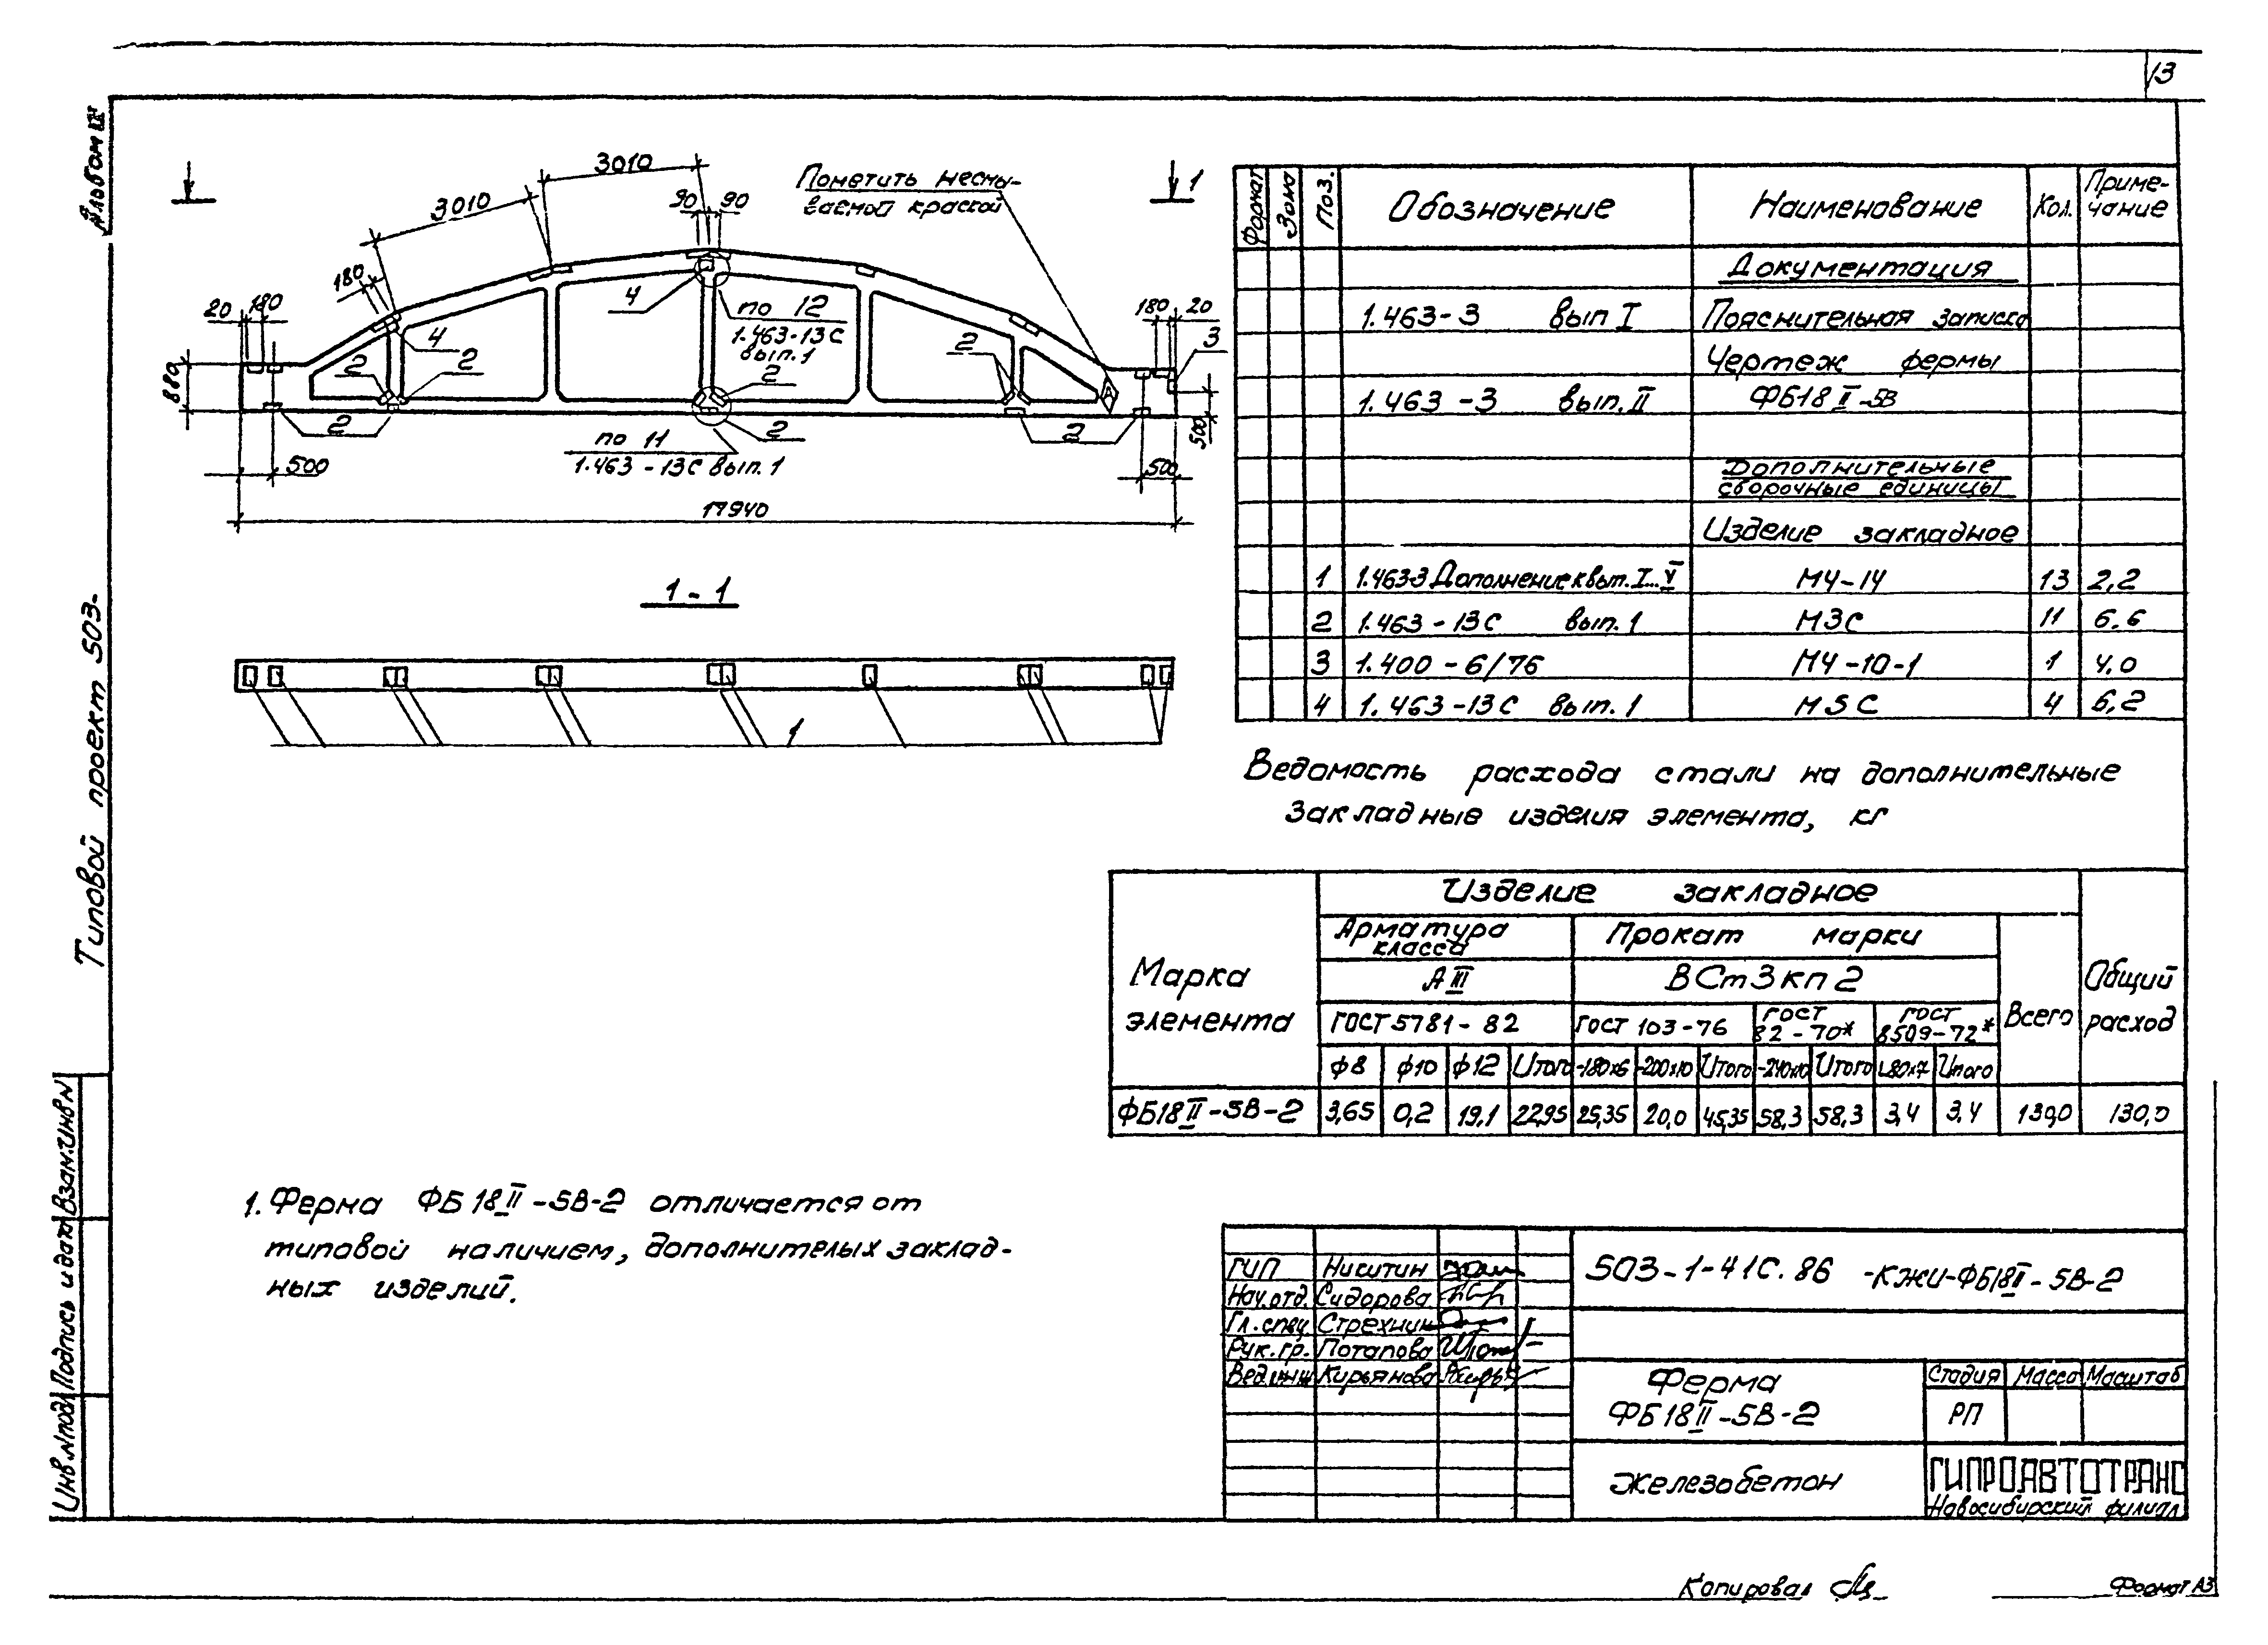 13
Альбом III
Типовой проект 503-
Взам.инв.N
Подпись и дата
Инв.N подл.
3010
3010
90 90
Пометить несмы-
ваемой краской
1
180
20 180
4
4
по 12
1.463-13С
вып.1
2
2
2
2
180 20
3
880
2
2
2
500
по 11
1.463-13С вып.1
500
500
17940
1-1
1
Формат Зона Поз. Обозначение Наименование Кол. Приме-
чание
Документация
1.463-3 вып I Пояснительная записка
Чертеж фермы
1.463-3 вып.II ФБ18II-5В
Дополнительные
сборочные единицы
Изделие закладное
1 1.463-3 Дополнение к вып. I...V М4-14 13 2,2
2 1.463-13С вып.1 М3С 11 6.6
3 1.400-6/76 М4-10-1 1 4.0
4 1.463-13С вып.1 М5С 4 6,2
Ведомость расхода стали на дополнительные
закладные изделия элемента, кг
Марка
элемента
Изделие закладное
Общий
расход
Арматура
класса
Прокат марки
Всего
АIII ВСт3кп2
ГОСТ 5781-82 ГОСТ 103-76 ГОСТ
82-70* ГОСТ
8509-72*
ф8 ф10 ф12 Итого -180х6 -200х10 Итого -240х10 Итого L80х7 Итого
ФБ18II-5В-2 3,65 0,2 19,1 22,95 25,35 20,0 45,35 58,3 58,3 3,4 3,4 130,0 130,0
1. Ферма ФБ18II-5В-2 отличается от
типовой наличием, дополнителых заклад-
ных изделий.
ГИП Никитин
Нач.отд. Сидорова
Гл. спец Стрехнин
Рук. гр. Потапова
Вед.инж Кирьянова
503-1-41С.86 -КЖИ-ФБ18II-5В-2
Ферма
ФБ18II-5В-2
Стадия Масса Масштаб
РП
Железобетон
ГИПРОАВТОТРАНС
Новосибирский филиал
Копировал
Формат А3